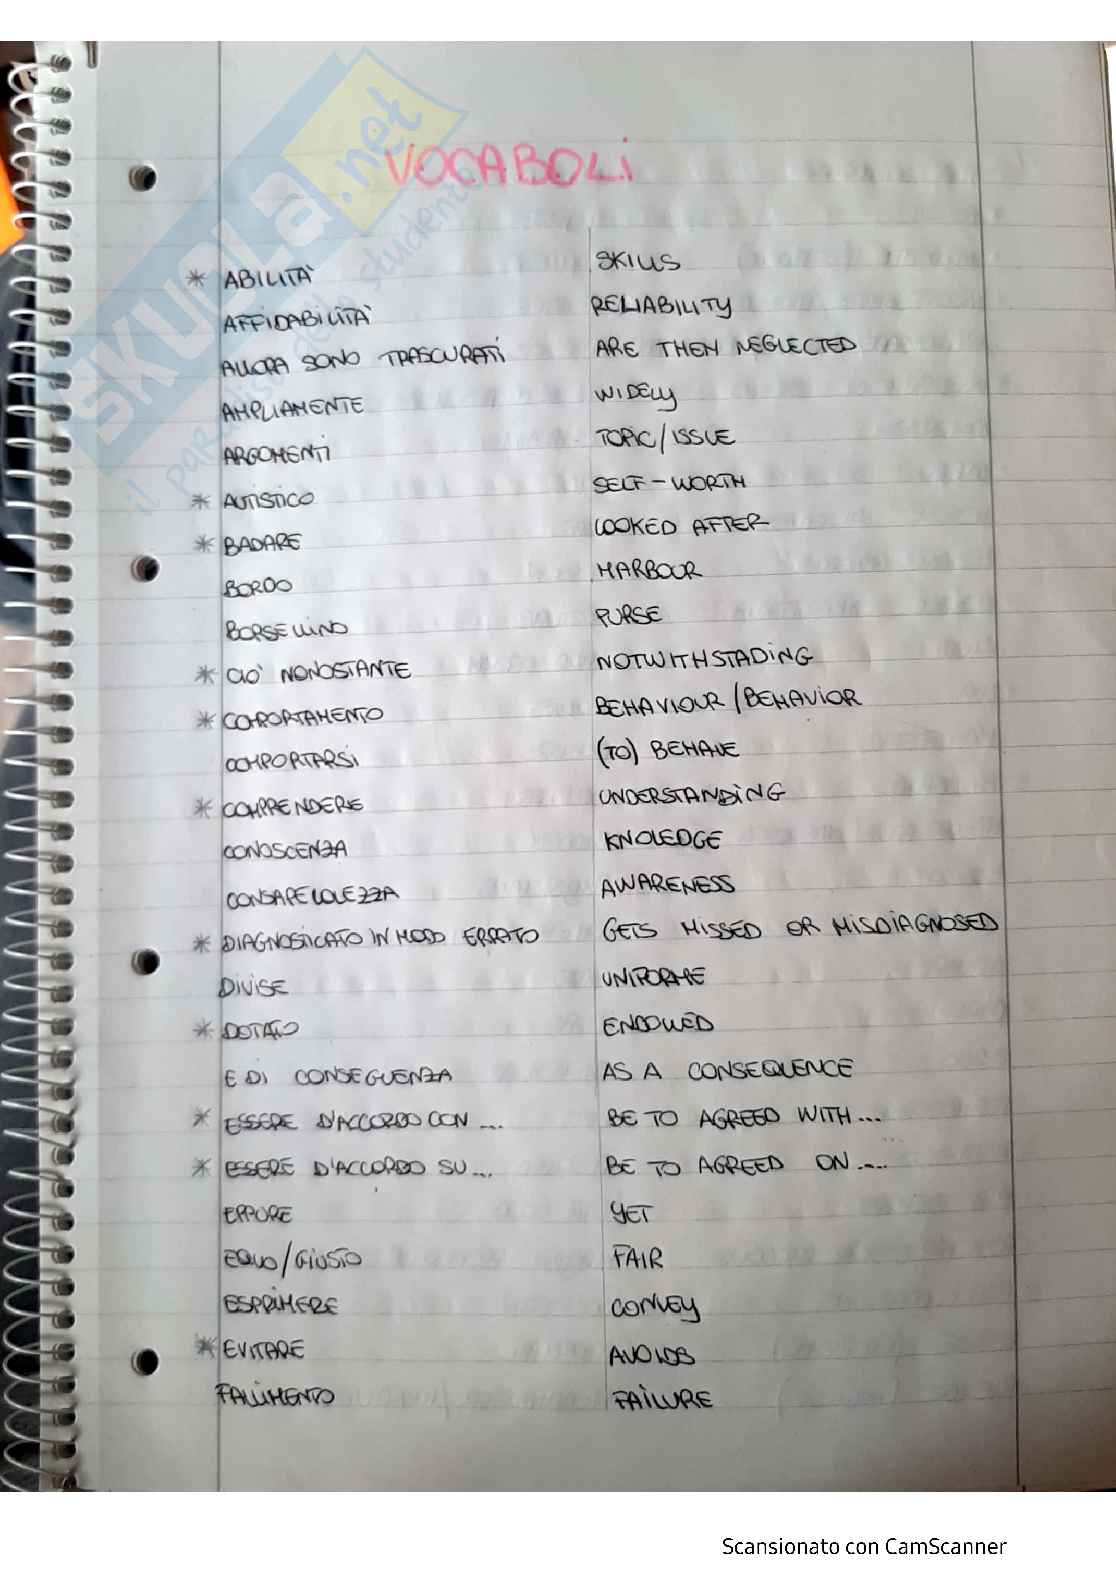 VOCABOLI
* ABILITÀ SKILLS
AFFIDABILITÀ RELIABILITY
ALLORA SONO TRASCURATI ARE THEN NEGLECTED
AMPLIAMENTE WIDELY
ARGOMENTI TOPIC/ISSUE
* AUTISTICO SELF-WORTH
* BADARE LOOKED AFTER
BORDO HARBOUR
BORSELLINO PURSE
* CIÒ NONOSTANTE NOTWITHSTADING
* COMPORTAMENTO BEHAVIOUR/BEHAVIOR
COMPORTARSI (TO) BEHAVE
* COMPRENDERE UNDERSTANDING
CONOSCENZA KNOLEDGE
CONSAPEVOLEZZA AWARENESS
* DIAGNOSTICATO IN MODO ERRATO GETS MISSED OR MISDIAGNOSED
DIVISE UNIFORME
* DOTATO ENDOWED
E DI CONSEGUENZA AS A CONSEQUENCE
* ESSERE D'ACCORDO CON ... BE TO AGREED WITH...
* ESSERE D'ACCORDO SU ... BE TO AGREED ON....
EPPURE YET
EQUO/GIUSTO FAIR
ESPRIMERE CONVEY
* EVITARE AVOIDS
FALLIMENTO FAILURE
SKUOLA.net
il paradiso dello studente
Scansionato con CamScanner